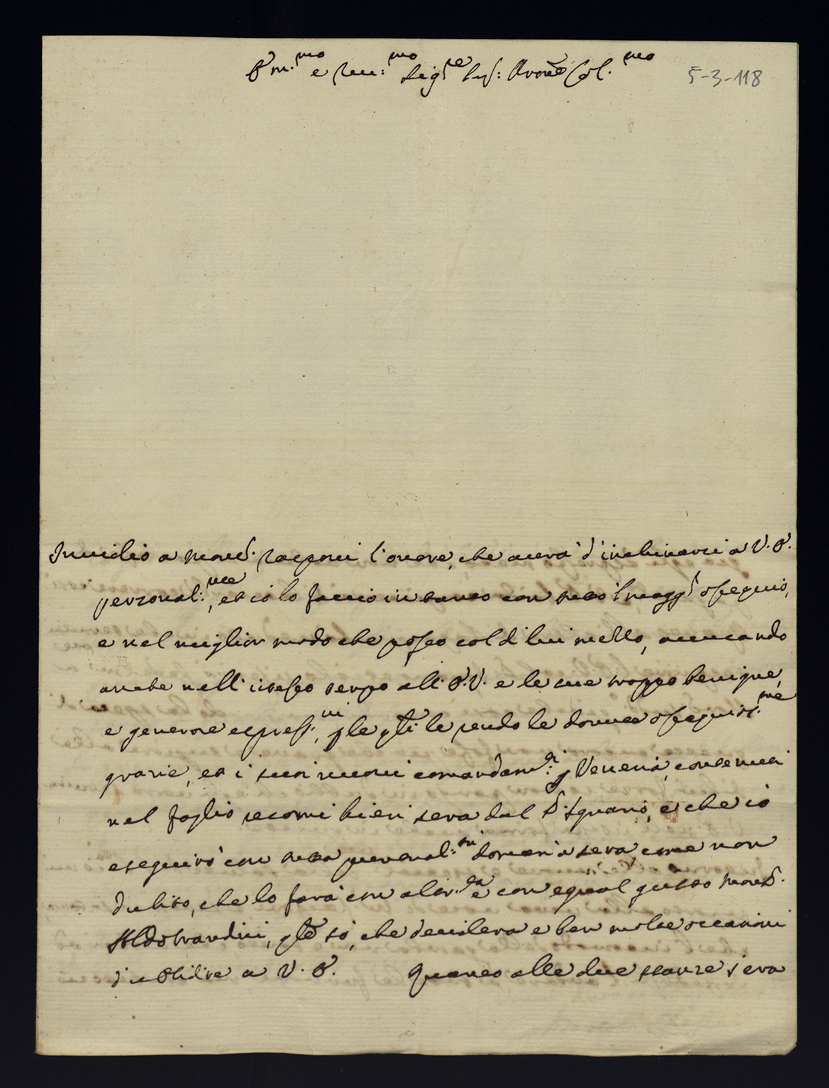 Em.mo e Rev:mo Sig.re Sig: Prone Col.mo
5-3-118
Invidio a Mons.r l'onore, che averà d'inchinarsi a V.E.
personal:mte, et io lo faccio in tanto con tutto il magg.r ossequio,
e nel miglior modo che posso col di lui mezzo, accusando
anche nell'istesso tempo all'E.V. e le sue troppo benigne,
e generose espress.ni, per le q.li le rendo le dovute ossequios.me
grazie, et i suoi nuovi comandam.ti per Venerdi, contenuti
nel foglio resomi hieri sera dal S.r, e che io
eseguirò con tutta puntual:tà domani a sera, come non
dubito, che lo farà con altr.ta e con egual gusto Mons.r
Aldobrandini, q.le sò, che desidera e ben molte occasioni
d'ubbidire a V.E. Quanto alle due stanze s'era